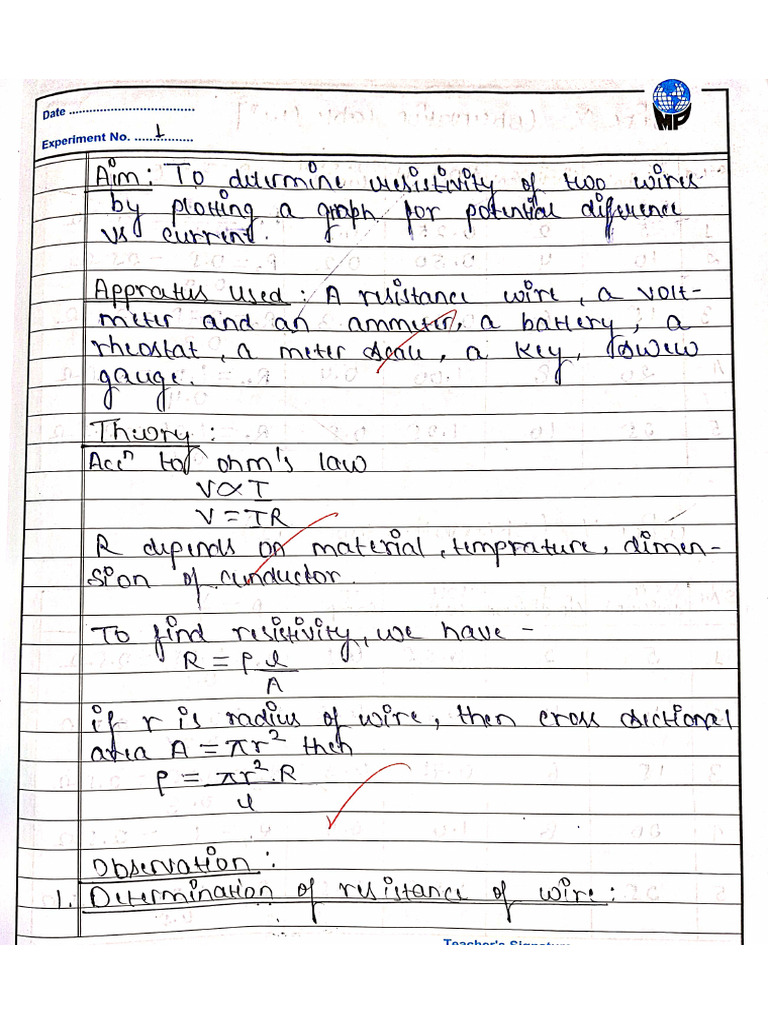 Date ....................................
MP
Experiment No. ....1............
Aim: To determine resistivity of two wires
by plotting a graph for potential diference
vs current.
Appratus used: A resistance wire, a volt-
meter and an ammeter, a battery, a
rheostat, a meter scale, a key, screw
gauge.
Theory:
Accⁿ to ohm's law
V∝I
V=IR
R depends on material, temprature, dimen-
sion of conductor.
To find resistivity, we have -
R = ρ l
A
if r is radius of wire, then cross sectional
area A = πr² then
ρ = πr².R
l
Observation:
1. Determination of resistance of wire: